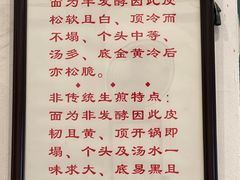 面为半发酵因此皮
松软且白、顶冷而
不塌、个头中等、
汤多、底金黄冷后
亦松脆。
非传统生煎特点：
面为非发酵因此皮
韧且黄、顶开锅即
塌、个头及汤水一
味求大、底易黑且